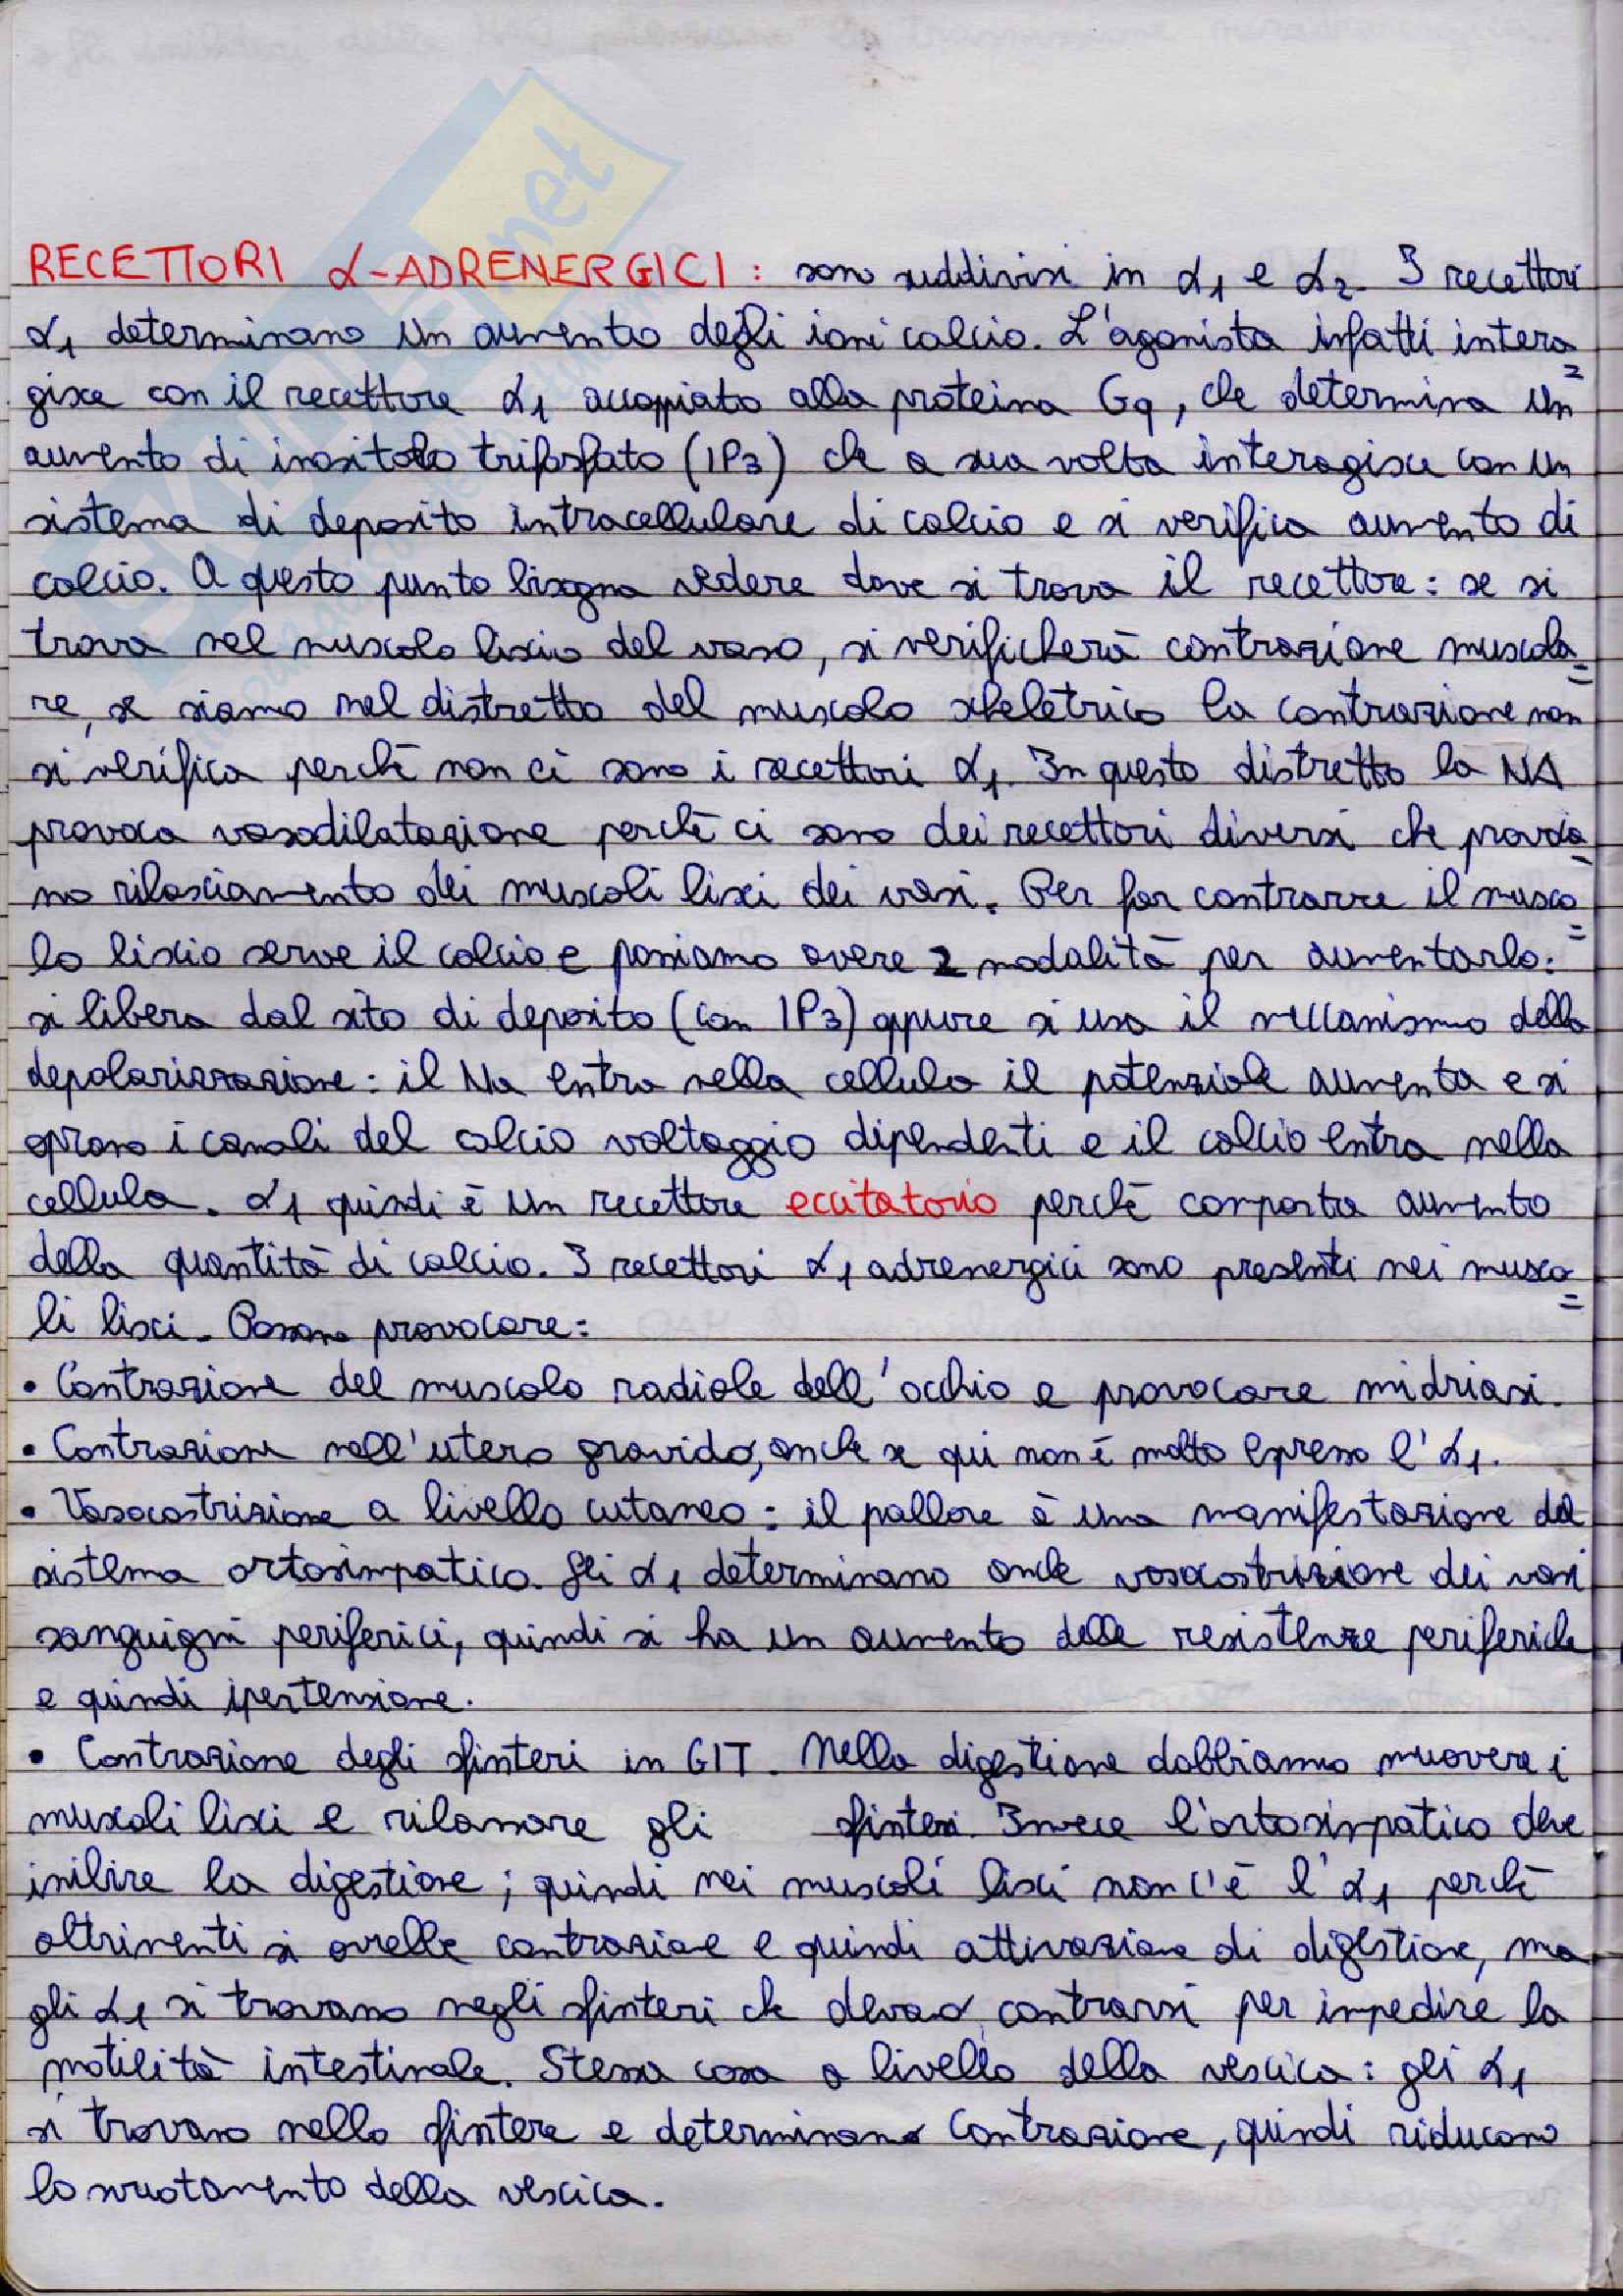 RECETTORI α-ADRENERGICI: sono suddivisi in α1 e α2. I recettori
α1 determinano un aumento degli ioni calcio. L'agonista infatti intera=
gisce con il recettore α1 accoppiato alla proteina Gq, che determina un
aumento di inositolo trifosfato (IP3) che a sua volta interagisce con un
sistema di deposito intracellulare di calcio e si verifica aumento di
calcio. A questo punto bisogna vedere dove si trova il recettore: se si
trova nel muscolo liscio del vaso, si verificherà contrazione muscola=
re, se siamo nel distretto del muscolo scheletrico la contrazione non
si verifica perchè non ci sono i recettori α1. In questo distretto la NA
provoca vasodilatazione perchè ci sono dei recettori diversi che provoca=
no rilasciamento dei muscoli lisci dei vasi. Per far contrarre il musco=
lo liscio serve il calcio e possiamo avere 2 modalità per aumentarlo:
si libera dal sito di deposito (con IP3) oppure si usa il meccanismo della
depolarizzazione: il Na entra nella cellula il potenziale aumenta e si
aprono i canali del calcio voltaggio dipendenti e il calcio entra nella
cellula. α1 quindi è un recettore eccitatorio perchè comporta aumento
della quantità di calcio. I recettori α1 adrenergici sono presenti nei musco=
li lisci. Possono provocare:
• Contrazione del muscolo radiale dell'occhio e provocare midriasi.
• Contrazione nell'utero gravido, anche se qui non è molto espresso l'α1.
• Vasocostrizione a livello cutaneo: il pallore è una manifestazione del
sistema ortosimpatico. Gli α1 determinano anche vasocostrizione dei vasi
sanguigni periferici, quindi si ha un aumento delle resistenze periferiche
e quindi ipertensione.
• Contrazione degli sfinteri in GIT. Nella digestione dobbiamo muovere i
muscoli lisci e rilassare gli sfinteri. Invece l'ortosimpatico deve
inibire la digestione; quindi nei muscoli lisci non c'è l'α1 perchè
altrimenti si avrebbe contrazione e quindi attivazione di digestione, ma
gli α1 si trovano negli sfinteri che devono contrarsi per impedire la
motilità intestinale. Stessa cosa a livello della vescica: gli α1
si trovano nello sfintere e determinano contrazione, quindi riducono
lo svuotamento della vescica.